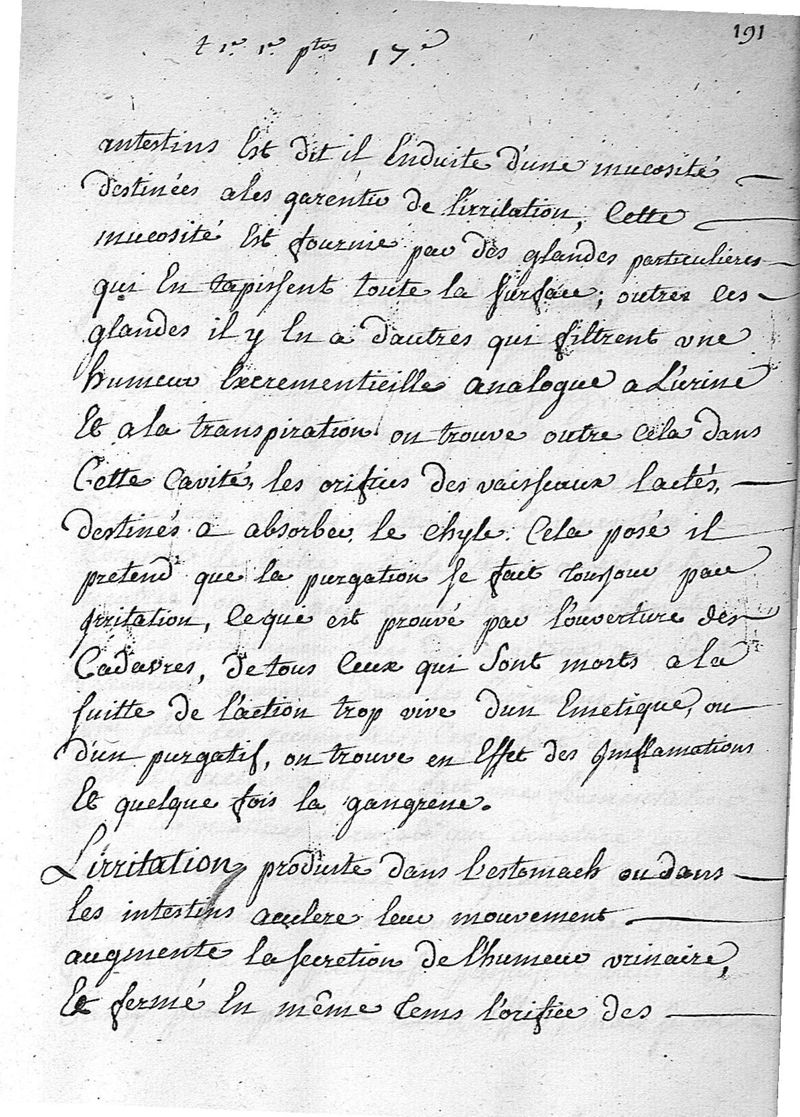 191
t 1re 1re ptes 17e
intestins Est dit il Enduite d'une mucosité
destinées a les garentir de l'irritation, Cette
mucosité Est fournie par des glandes particulieres
qui En tapissent toute la surface; outres ces
glandes il y En a d'autres qui filtrent une
humeur Excrementicielle analogue a L'urine
Et a la transpiration on trouve outre Cela dans
Cette Cavité, les orifices des vaisseaux lactés,
destinés a absorber le chyle. Cela posé il
pretend que la purgation se fait toujour par
Irritation, Ce qui est prouvé par l'ouverture des
Cadavres, de tous Ceux qui Sont morts a la
suitte de l'action trop vive d'un Emetique, ou
d'un purgatif, on trouve en Effet des Inflamations
Et quelque fois la gangrene.
L'irritation produite dans l'estomach ou dans
les intestins aculere leur mouvement
augmente la secretion de l'humeur urinaire,
Et fermé En même tems l'orifice des